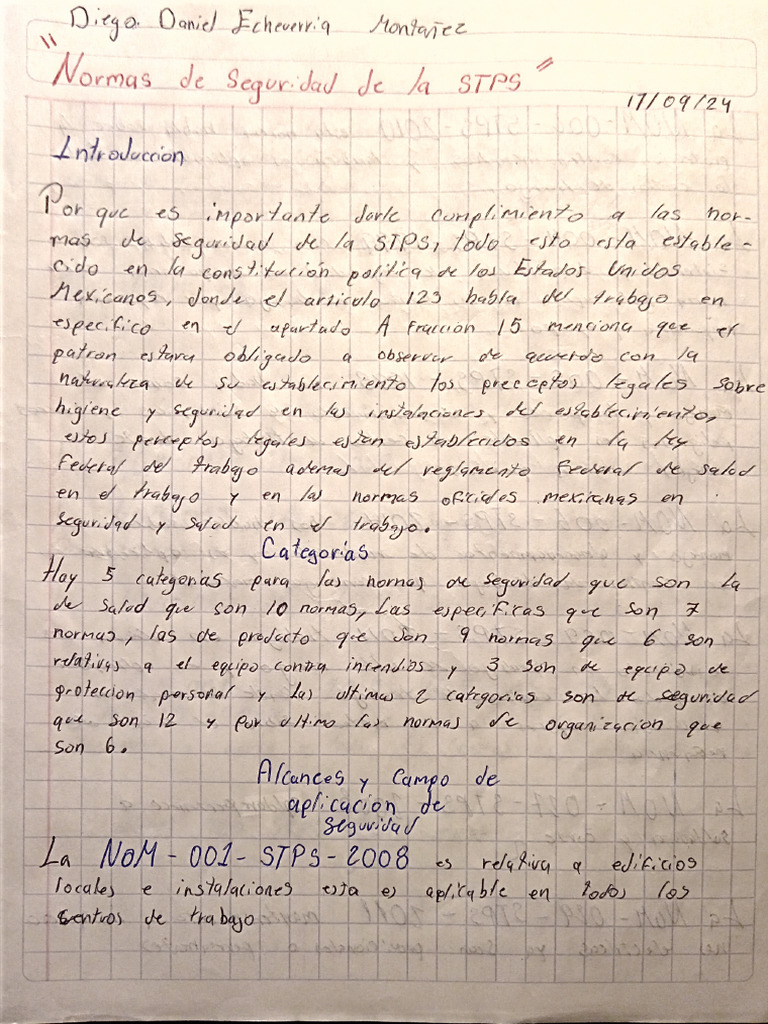 Diego Daniel Echeverria Montañez
"Normas de Seguridad de la STPS"
17/09/24
Introduccion
Por que es importante darle cumplimiento a las nor-
mas de seguridad de la STPS, todo esto esta estable-
cido en la constitución politica de los Estados Unidos
Mexicanos, donde el articulo 123 habla del trabajo, en
especifico en el apartado A Fracción 15 menciona que el
patron estara obligado a observar de acuerdo con la
naturaleza de su establecimiento los preceptos legales sobre
higiene y seguridad en las instalaciones del establecimiento,
estos perceptos legales estan establecidos en la ley
Federal del trabajo ademas del reglamento Federal de salud
en el trabajo y en las normas oficiales mexicanas en
seguridad y salud en el trabajo.
Categorias
Hay 5 categorias para las normas de seguridad que son la
de salud que son 10 normas, Las especificas que son 7
normas, las de producto que son 9 normas que 6 son
relativas a el equipo contra incendios y 3 son de equipo de
protección personal y las ultimas 2 categorias son de seguridad
que son 12 y por ultimo las normas de organizacion que
son 6.
Alcances y Campo de
aplicación de
seguridad
La NOM-001-STPS-2008 es relativa a edificios
locales e instalaciones esta es aplicable en todos los
centros de trabajo